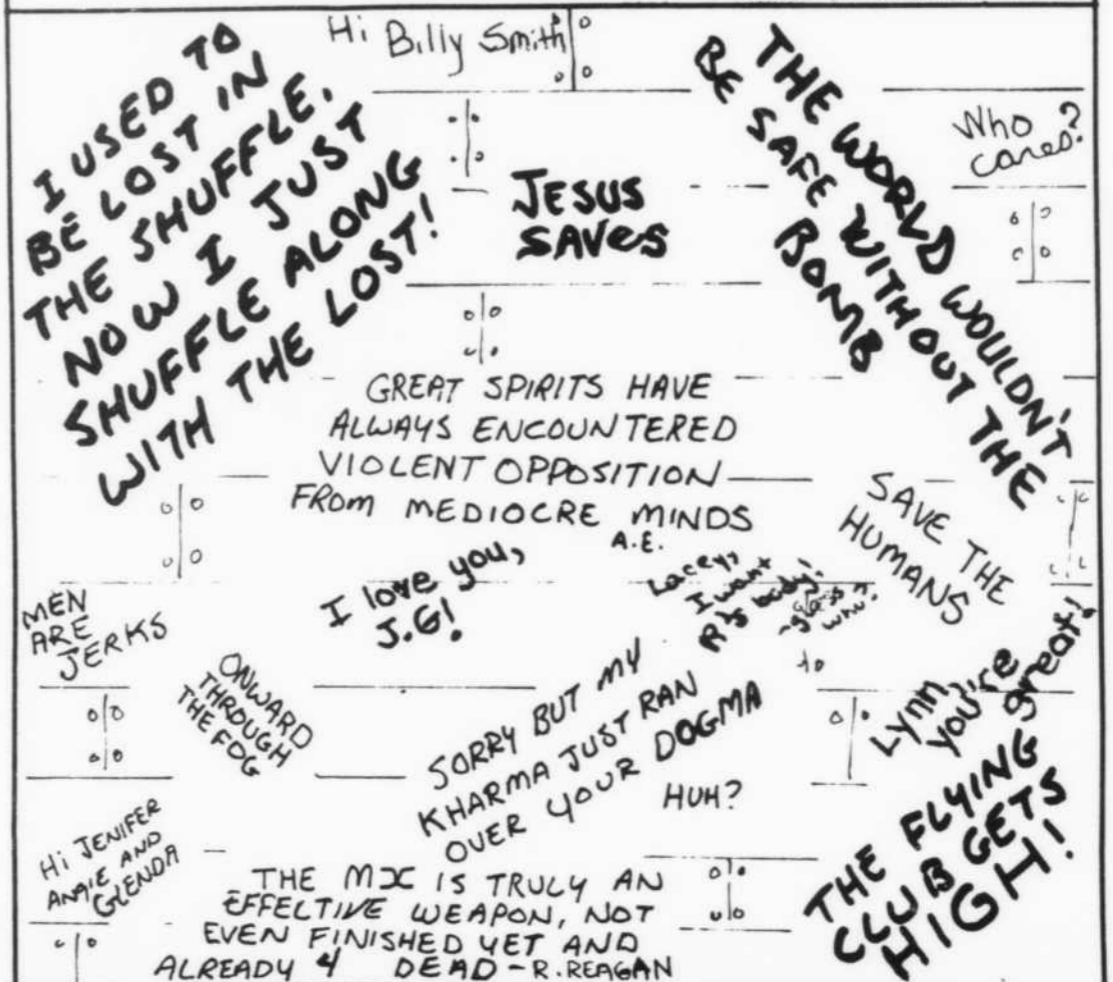 Hi Billy Smith
I USED TO
BE LOST IN
THE SHUFFLE.
NOW I JUST
SHUFFLE ALONG
WITH THE LOST!
JESUS
SAVES
THE WORLD WOULDN'T
BE SAFE WITHOUT THE
BOMB
Who
cares?
GREAT SPIRITS HAVE
ALWAYS ENCOUNTERED
VIOLENT OPPOSITION
FROM MEDIOCRE MINDS
A.E.
SAVE THE
HUMANS
I love you,
J.G!
Lacey,
I want
R's body!
-guess
who?
MEN
ARE
JERKS
ONWARD
THROUGH
THE FOG
SORRY BUT MY
KHARMA JUST RAN
OVER YOUR DOGMA
HUH?
to
Lynn
you're
great!
THE FLYING
CLUB GETS
HIGH!
Hi JENIFER
ANGIE AND
GLENDA
THE MX IS TRULY AN
EFFECTIVE WEAPON, NOT
EVEN FINISHED YET AND
ALREADY 4 DEAD - R.REAGAN